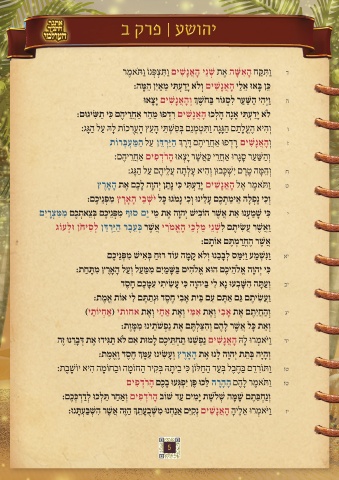 יהושע | פרק ב
ד ותקח האשה את שני האנשים ותצפנו ותאמר
כן באו אלי האנשים ולא ידעתי מאין המה:
ה ויהי השער לסגור בחשך והאנשים יצאו
לא ידעתי אנה הלכו האנשים רדפו מהר אחריהם כי תשיגום:
ו והיא העלתם הגגה ותטמנם בפשתי העץ הערכות לה על הגג:
ז והאנשים רדפו אחריהם דרך הירדן על המעברות
והשער סגרו אחרי כאשר יצאו הרדפים אחריהם:
ח והמה טרם ישכבון והיא עלתה עליהם על הגג:
ט ותאמר אל האנשים ידעתי כי נתן יהוה לכם את הארץ
וכי נפלה אימתכם עלינו וכי נמגו כל ישבי הארץ מפניכם:
י כי שמענו את אשר הוביש יהוה את מי ים סוף מפניכם בצאתכם ממצרים
ואשר עשיתם לשני מלכי האמרי אשר בעבר הירדן לסיחן ולעוג
אשר החרמתם אותם:
יא ונשמע וימס לבבנו ולא קמה עוד רוח באיש מפניכם
כי יהוה אלהיכם הוא אלהים בשמים ממעל ועל הארץ מתחת:
יב ועתה השבעו נא לי ביהוה כי עשיתי עמכם חסד
ועשיתם גם אתם עם בית אבי חסד ונתתם לי אות אמת:
יג והחיתם את אבי ואת אמי ואת אחי ואת אחותי (אחיותי)
ואת כל אשר להם והצלתם את נפשתינו ממות:
יד ויאמרו לה האנשים נפשנו תחתיכם למות אם לא תגידו את דברנו זה
והיה בתת יהוה לנו את הארץ ועשינו עמך חסד ואמת:
טו ותורדם בחבל בעד החלון כי ביתה בקיר החומה ובחומה היא יושבת:
טז ותאמר להם ההרה לכו פן יפגעו בכם הרדפים
ונחבתם שמה שלשת ימים עד שוב הרדפים ואחר תלכו לדרככם:
יז ויאמרו אליה האנשים נקים אנחנו משבעתך הזה אשר השבעתנו:
5